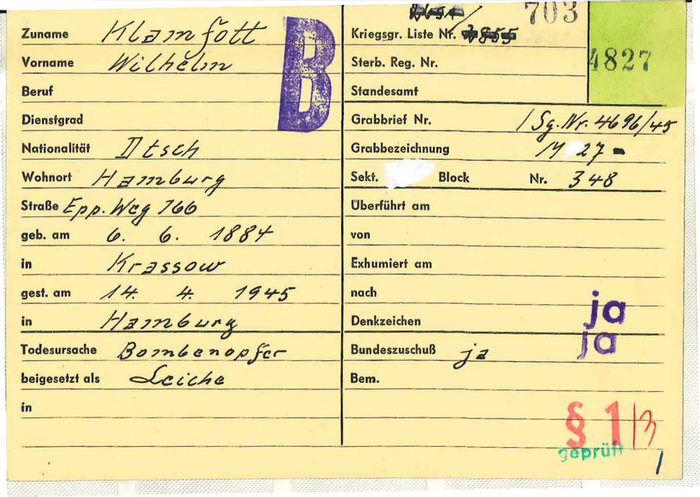 703
4827
B
Zuname Klamfott
Vorname Wilhelm
Beruf
Dienstgrad
Nationalität Dtsch
Wohnort Hamburg
Straße Epp. Weg 166
geb. am 6. 6. 1884
in Krassow
gest. am 14. 4. 1945
in Hamburg
Todesursache Bombenopfer
beigesetzt als Leiche
in
Kriegsgr. Liste Nr.
Sterb. Reg. Nr.
Standesamt
Grabbrief Nr. / Sg. Nr. 4696/45
Grabbezeichnung 27 -
Sekt. Block Nr. 348
Überführt am
von
Exhumiert am
nach
Denkzeichen ja
ja
Bundeszuschuß ja
Bem.
§ 1/3
geprüft